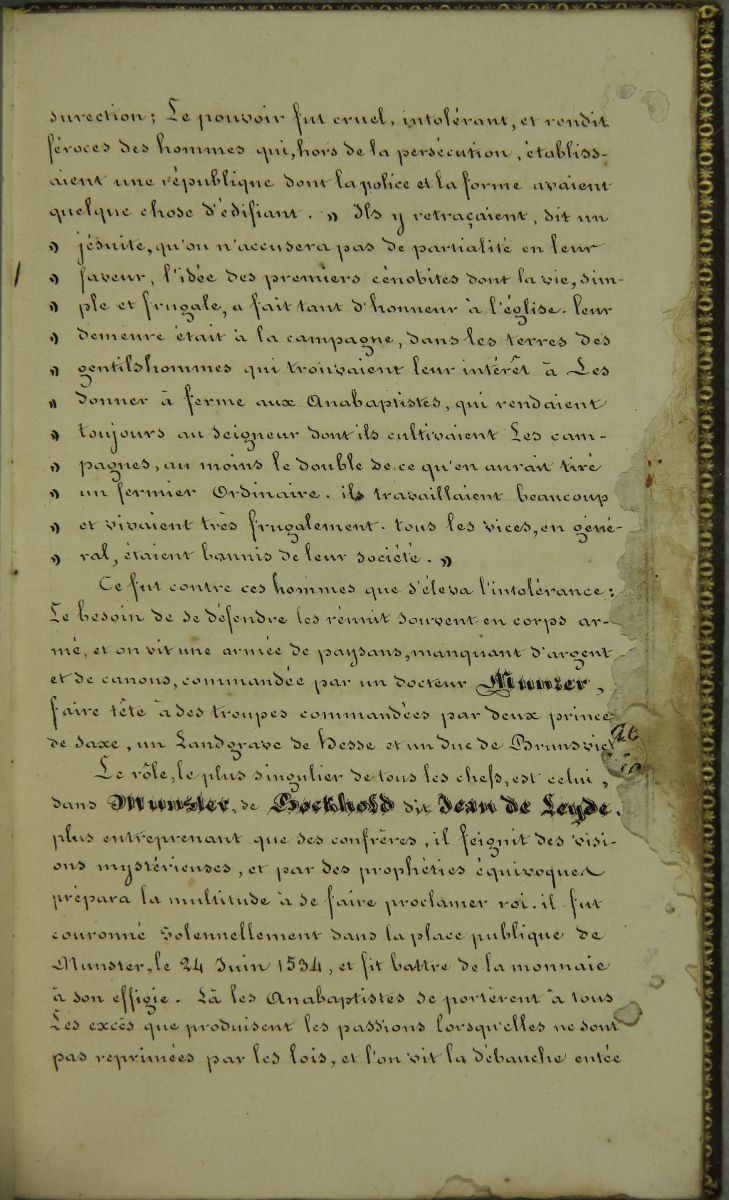 surection; Le pouvoir fut cruel, intolérant, et rendit
féroces des hommes qui, hors de la persécution, établiss-
aient une république dont la police et la forme avaient
quelque chose d'édifiant. » Ils y retraçaient, dit un
» jésuite, qu'on n'accusera pas de partialité en leur
» faveur, l'idée des premiers cénobites dont la vie, sim-
» ple et frugale, a fait tant d'honneur à l'église. leur
» demeure était à la campagne, dans les terres des
» gentilshommes qui trouvaient leur intérêt à Les
» donner à ferme aux Anabaptistes, qui rendaient
» toujours au seigneur dont ils cultivaient Les cam-
» pagnes, au moins le double de ce qu'en aurait tiré
» un fermier Ordinaire. ils travaillaient beaucoup
» et vivaient très frugalement. tous les vices, en géné-
» ral, étaient bannis de leur société. »
Ce fut contre ces hommes que s'éleva l'intolérance;
Le besoin de se défendre les réunit souvent en corps ar-
mé, et on vit une armée de paysans, manquant d'argent
et de canons, commandée par un docteur Munzer,
faire tête à des troupes commandées par deux princes
de saxe, un Landgrave de Hesse et un duc de Brunsvic
Le rôle, le plus singulier de tous les chefs, est celui,
dans Munster, de Bockhold dit Jean de Leyde.
plus entreprenant que ses confrères, il feignit des visi-
ons mystérieuses, et par des prophéties équivoques
prépara la multitude à se faire proclamer roi. il fut
couronné Solennellement dans la place publique de
Munster, le 24 Juin 1534, et fit battre de la monnaie
à son effigie. Là les Anabaptistes se portèrent à tous
Les excès que produisent les passions lorsqu'elles ne sont
pas reprimées par les lois, et l'on vit la débauche entée